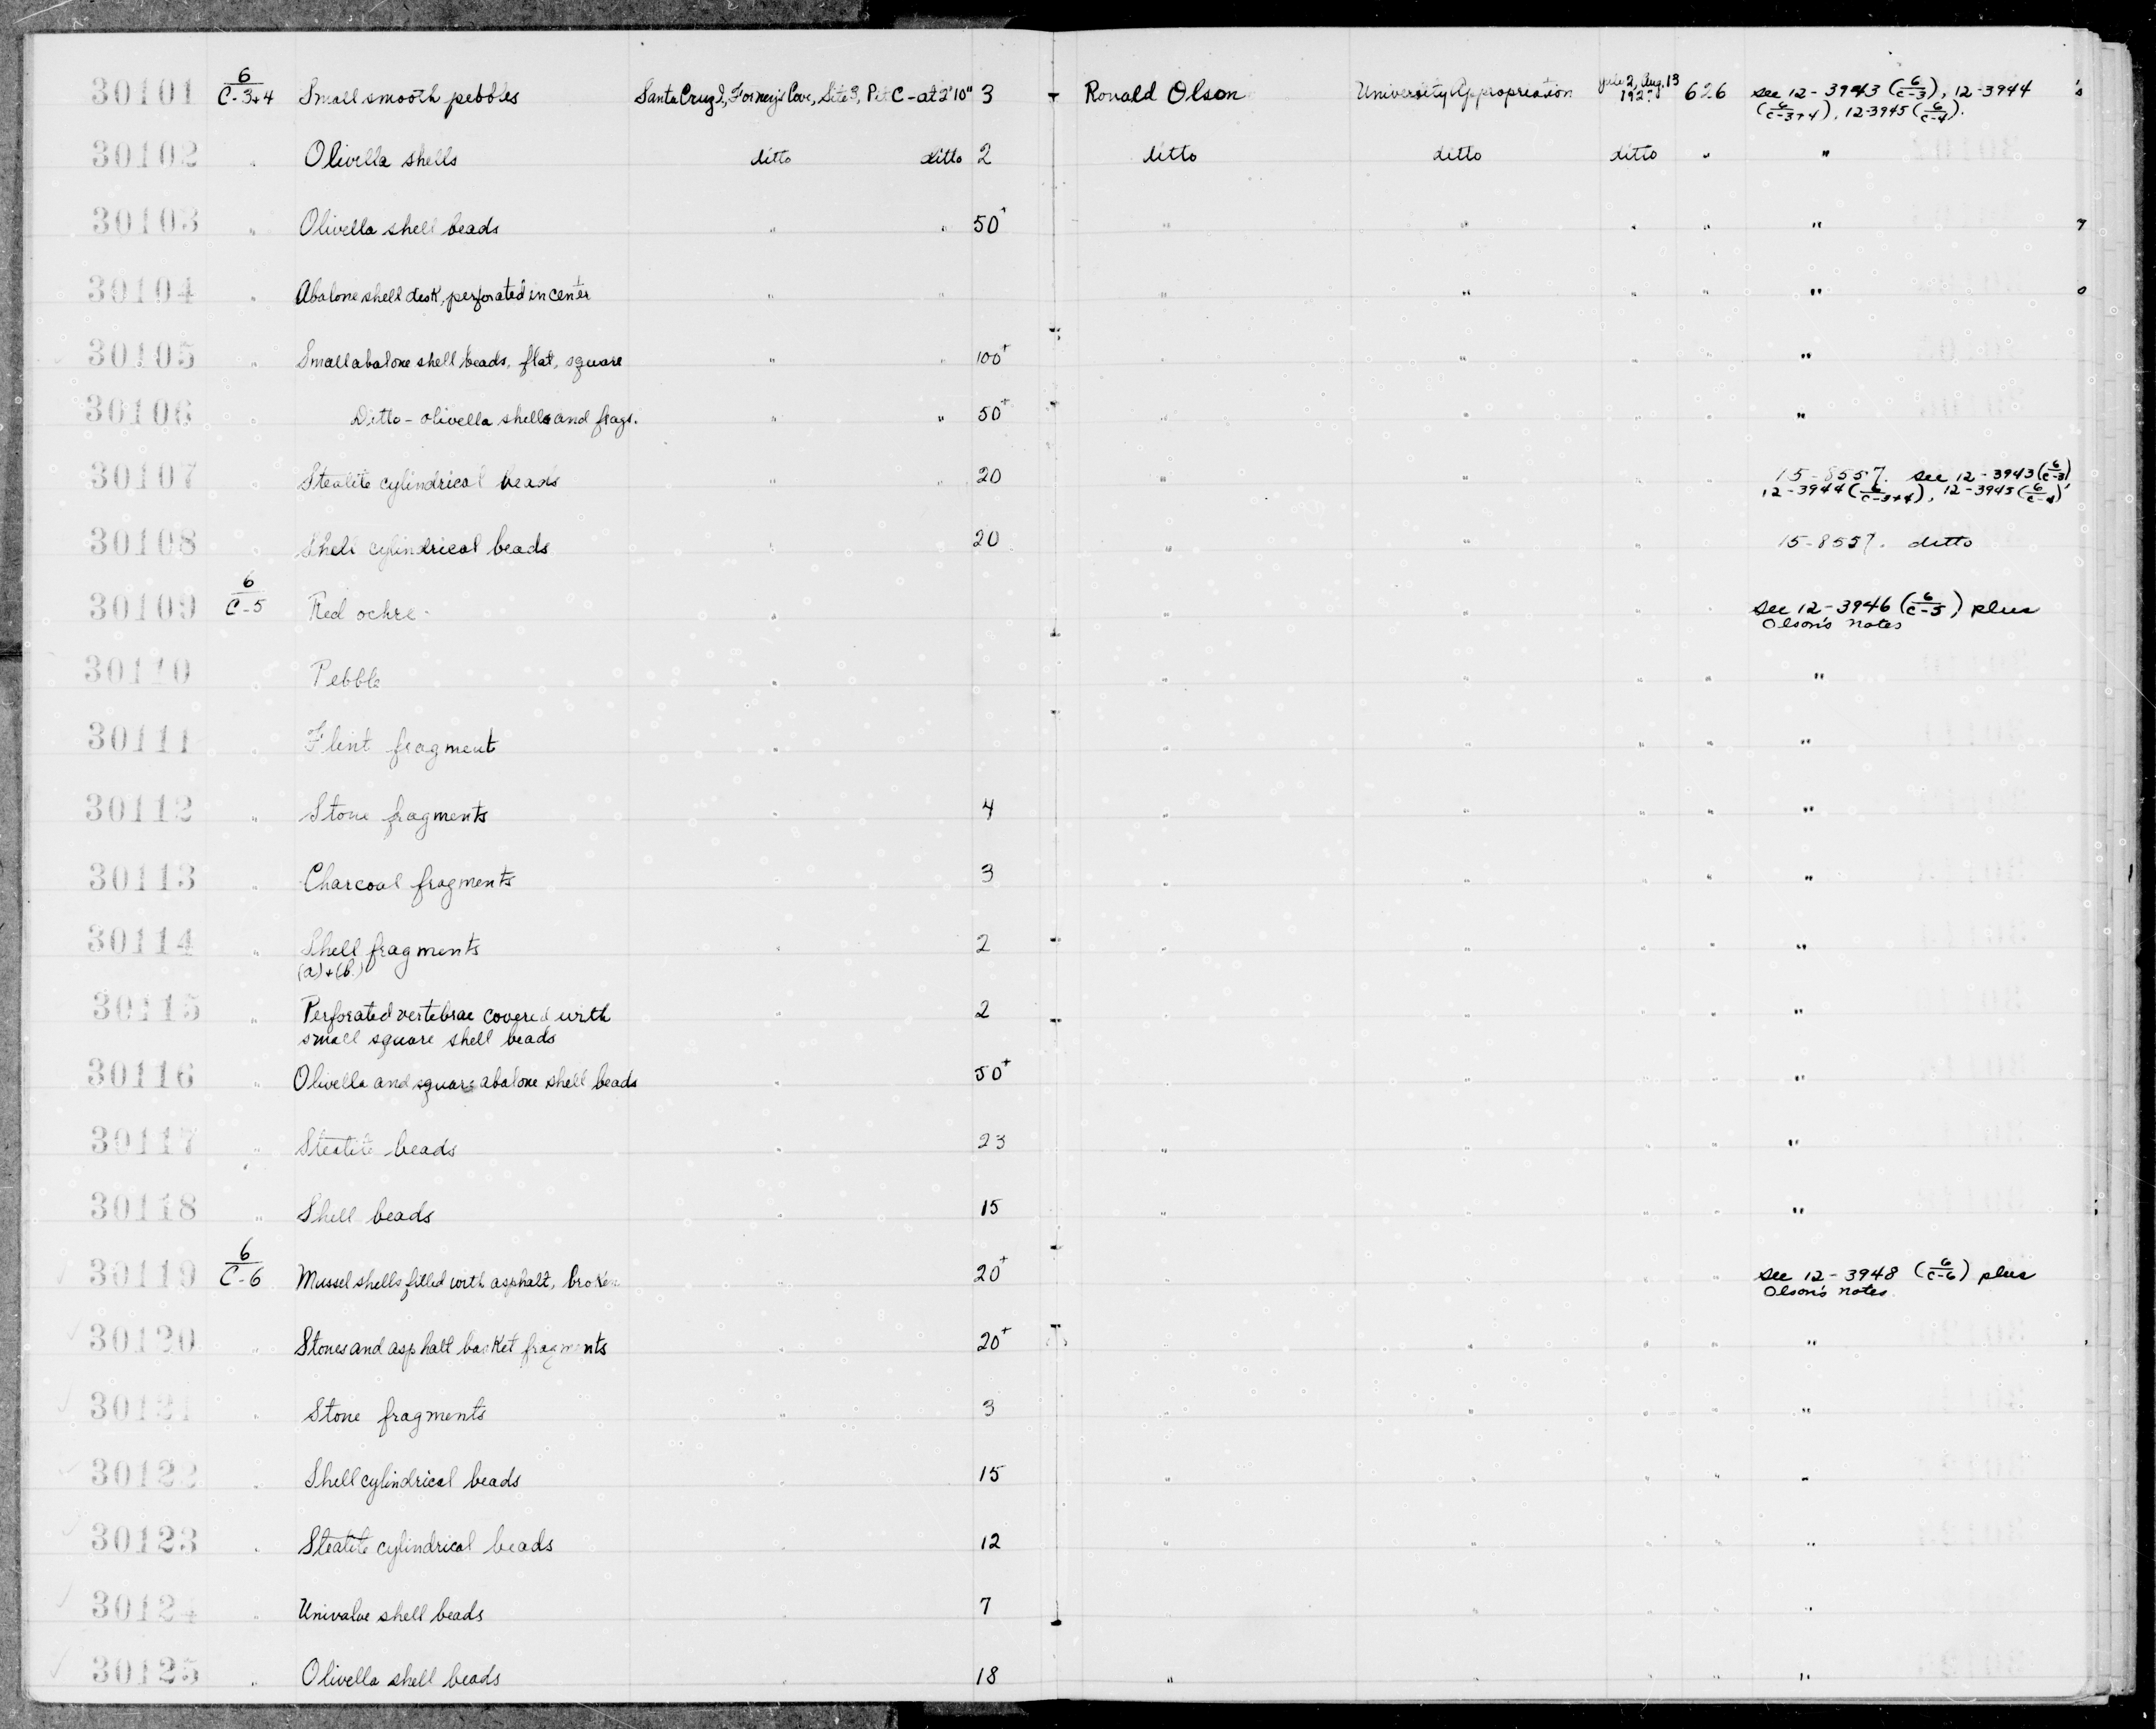 30101 6/C-3+4 Small smooth pebbles Santa Cruz I, Forney's Cove, Site 3, Pit C - at 2'10" 3 Ronald Olson University Appropriation July 2, Aug. 13 626 see 12-3943 (6/C-3), 12-3944
192 (6/C-3+4), 12-3945 (6/C-4).
30102 " Olivella shells ditto ditto 2 ditto ditto ditto " "
30103 " Olivella shell beads " " 50+ " " " " "
30104 " Abalone shell disk, perforated in center " " " " " " "
30105 " Small abalone shell beads, flat, square " " 100+ " " " " "
30106 " Ditto - olivella shells and frags. " " 50+ " " " " "
30107 " Steatite cylindrical beads " " 20 " " " " 15-8557. see 12-3943 (6/C-3)
12-3944 (6/C-3+4), 12-3945 (6/C-4)
30108 " Shell cylindrical beads " 20 " " " 15-8557. ditto
30109 6/C-5 Red ochre - " " " " " see 12-3946 (6/C-5) plus
Olson's notes
30110 " Pebble " " " " " "
30111 " Flint fragment " " " " " "
30112 " Stone fragments " 4 " " " " "
30113 " Charcoal fragments " 3 " " " " "
30114 " Shell fragments " 2 " " " " "
(a)+(b)
30115 " Perforated vertebrae covered with " 2 " " " " "
small square shell beads
30116 " Olivella and square abalone shell beads " 50+ " " " " "
30117 " Steatite beads " 23 " " " " "
30118 " Shell beads " 15 " " " " "
30119 6/C-6 Mussel shells filled with asphalt, broken " 20+ " " " " see 12-3948 (6/C-6) plus
Olson's notes
30120 " Stones and asphalt basket fragments " 20+ " " " " "
30121 " Stone fragments " 3 " " " " "
30122 " Shell cylindrical beads " 15 " " " " "
30123 " Steatite cylindrical beads " 12 " " " " "
30124 " Univalve shell beads " 7 " " " " "
30125 " Olivella shell beads " 18 " " " " "